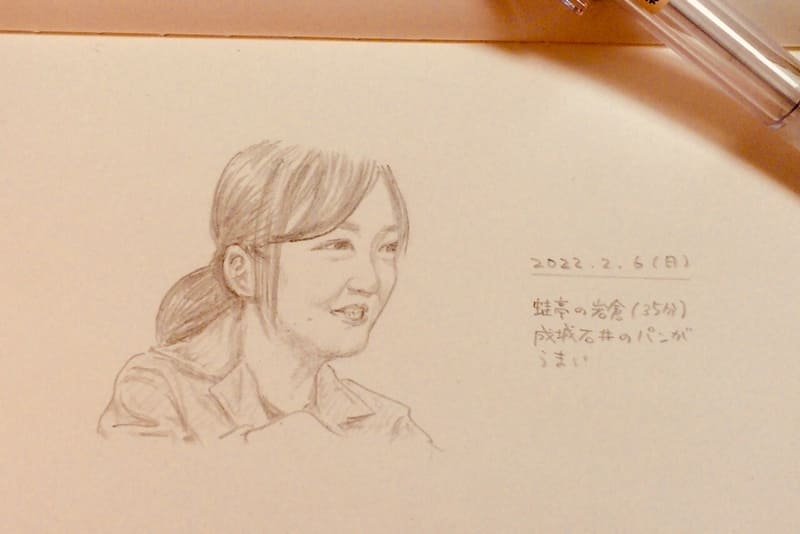 2022.2.6(日)
蛙亭の岩倉(35分)
成城石井のパンが
うまい